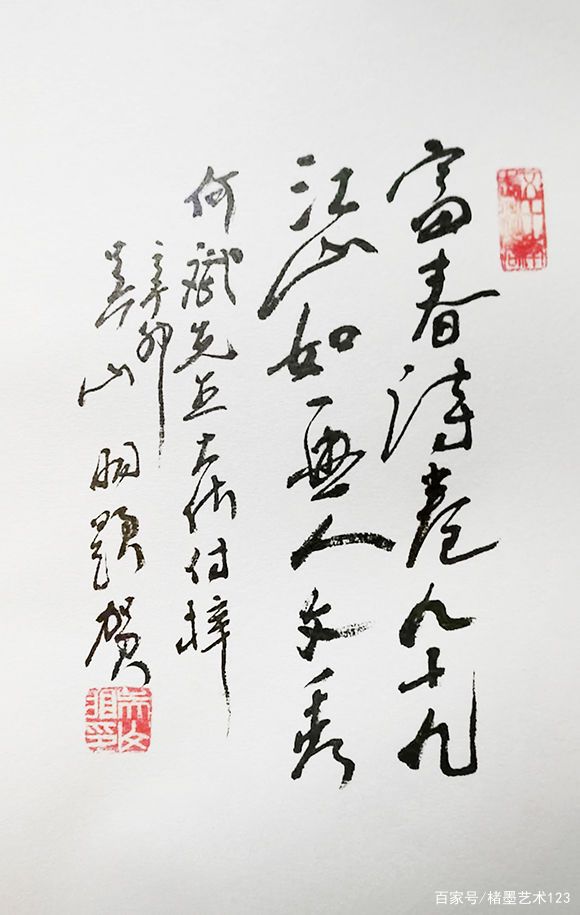 富春诗卷九十九
江山如画人文秀
何斌先生大作付梓
辛卯
吴山明题贺
百家号/楮墨艺术123